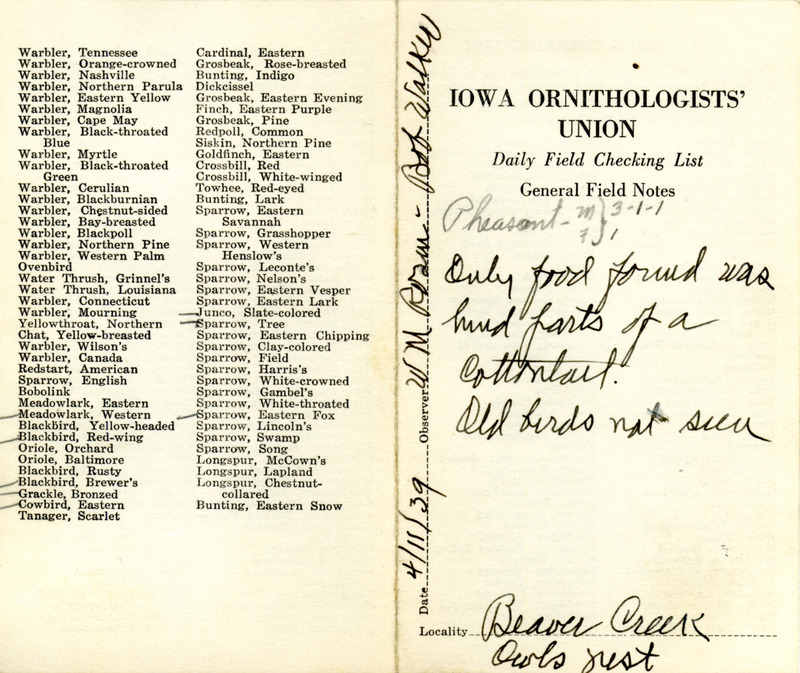 Warbler, Tennessee
Warbler, Orange-crowned
Warbler, Nashville
Warbler, Northern Parula
Warbler, Eastern Yellow
Warbler, Magnolia
Warbler, Cape May
Warbler, Black-throated
Blue
Warbler, Myrtle
Warbler, Black-throated
Green
Warbler, Cerulian
Warbler, Blackburnian
Warbler, Chestnut-sided
Warbler, Bay-breasted
Warbler, Blackpoll
Warbler, Northern Pine
Warbler, Western Palm
Ovenbird
Water Thrush, Grinnel's
Water Thrush, Louisiana
Warbler, Connecticut
Warbler, Mourning
Yellowthroat, Northern
Chat, Yellow-breasted
Warbler, Wilson's
Warbler, Canada
Redstart, American
Sparrow, English
Bobolink
Meadowlark, Eastern
Meadowlark, Western
Blackbird, Yellow-headed
Blackbird, Red-wing
Oriole, Orchard
Oriole, Baltimore
Blackbird, Rusty
Blackbird, Brewer's
Grackle, Bronzed
Cowbird, Eastern
Tanager, Scarlet
Cardinal, Eastern
Grosbeak, Rose-breasted
Bunting, Indigo
Dickcissel
Grosbeak, Eastern Evening
Finch, Eastern Purple
Grosbeak, Pine
Redpoll, Common
Siskin, Northern Pine
Goldfinch, Eastern
Crossbill, Red
Crossbill, White-winged
Towhee, Red-eyed
Bunting, Lark
Sparrow, Eastern
Savannah
Sparrow, Grasshopper
Sparrow, Western
Henslow's
Sparrow, Leconte's
Sparrow, Nelson's
Sparrow, Eastern Vesper
Sparrow, Eastern Lark
Junco, Slate-colored
Sparrow, Tree
Sparrow, Eastern Chipping
Sparrow, Clay-colored
Sparrow, Field
Sparrow, Harris's
Sparrow, White-crowned
Sparrow, Gambel's
Sparrow, White-throated
Sparrow, Eastern Fox
Sparrow, Lincoln's
Sparrow, Swamp
Sparrow, Song
Longspur, McCown's
Longspur, Lapland
Longspur, Chestnut-
collared
Bunting, Eastern Snow
Date 4/11/39 Observer W M Rosen - Bob Walker
IOWA ORNITHOLOGISTS'
UNION
Daily Field Checking List
General Field Notes
Pheasant - m } 3-1-1
7 } 1
Only food found was
hind parts of a
Cottontail.
Old birds not seen
Locality Beaver Creek
Owls nest